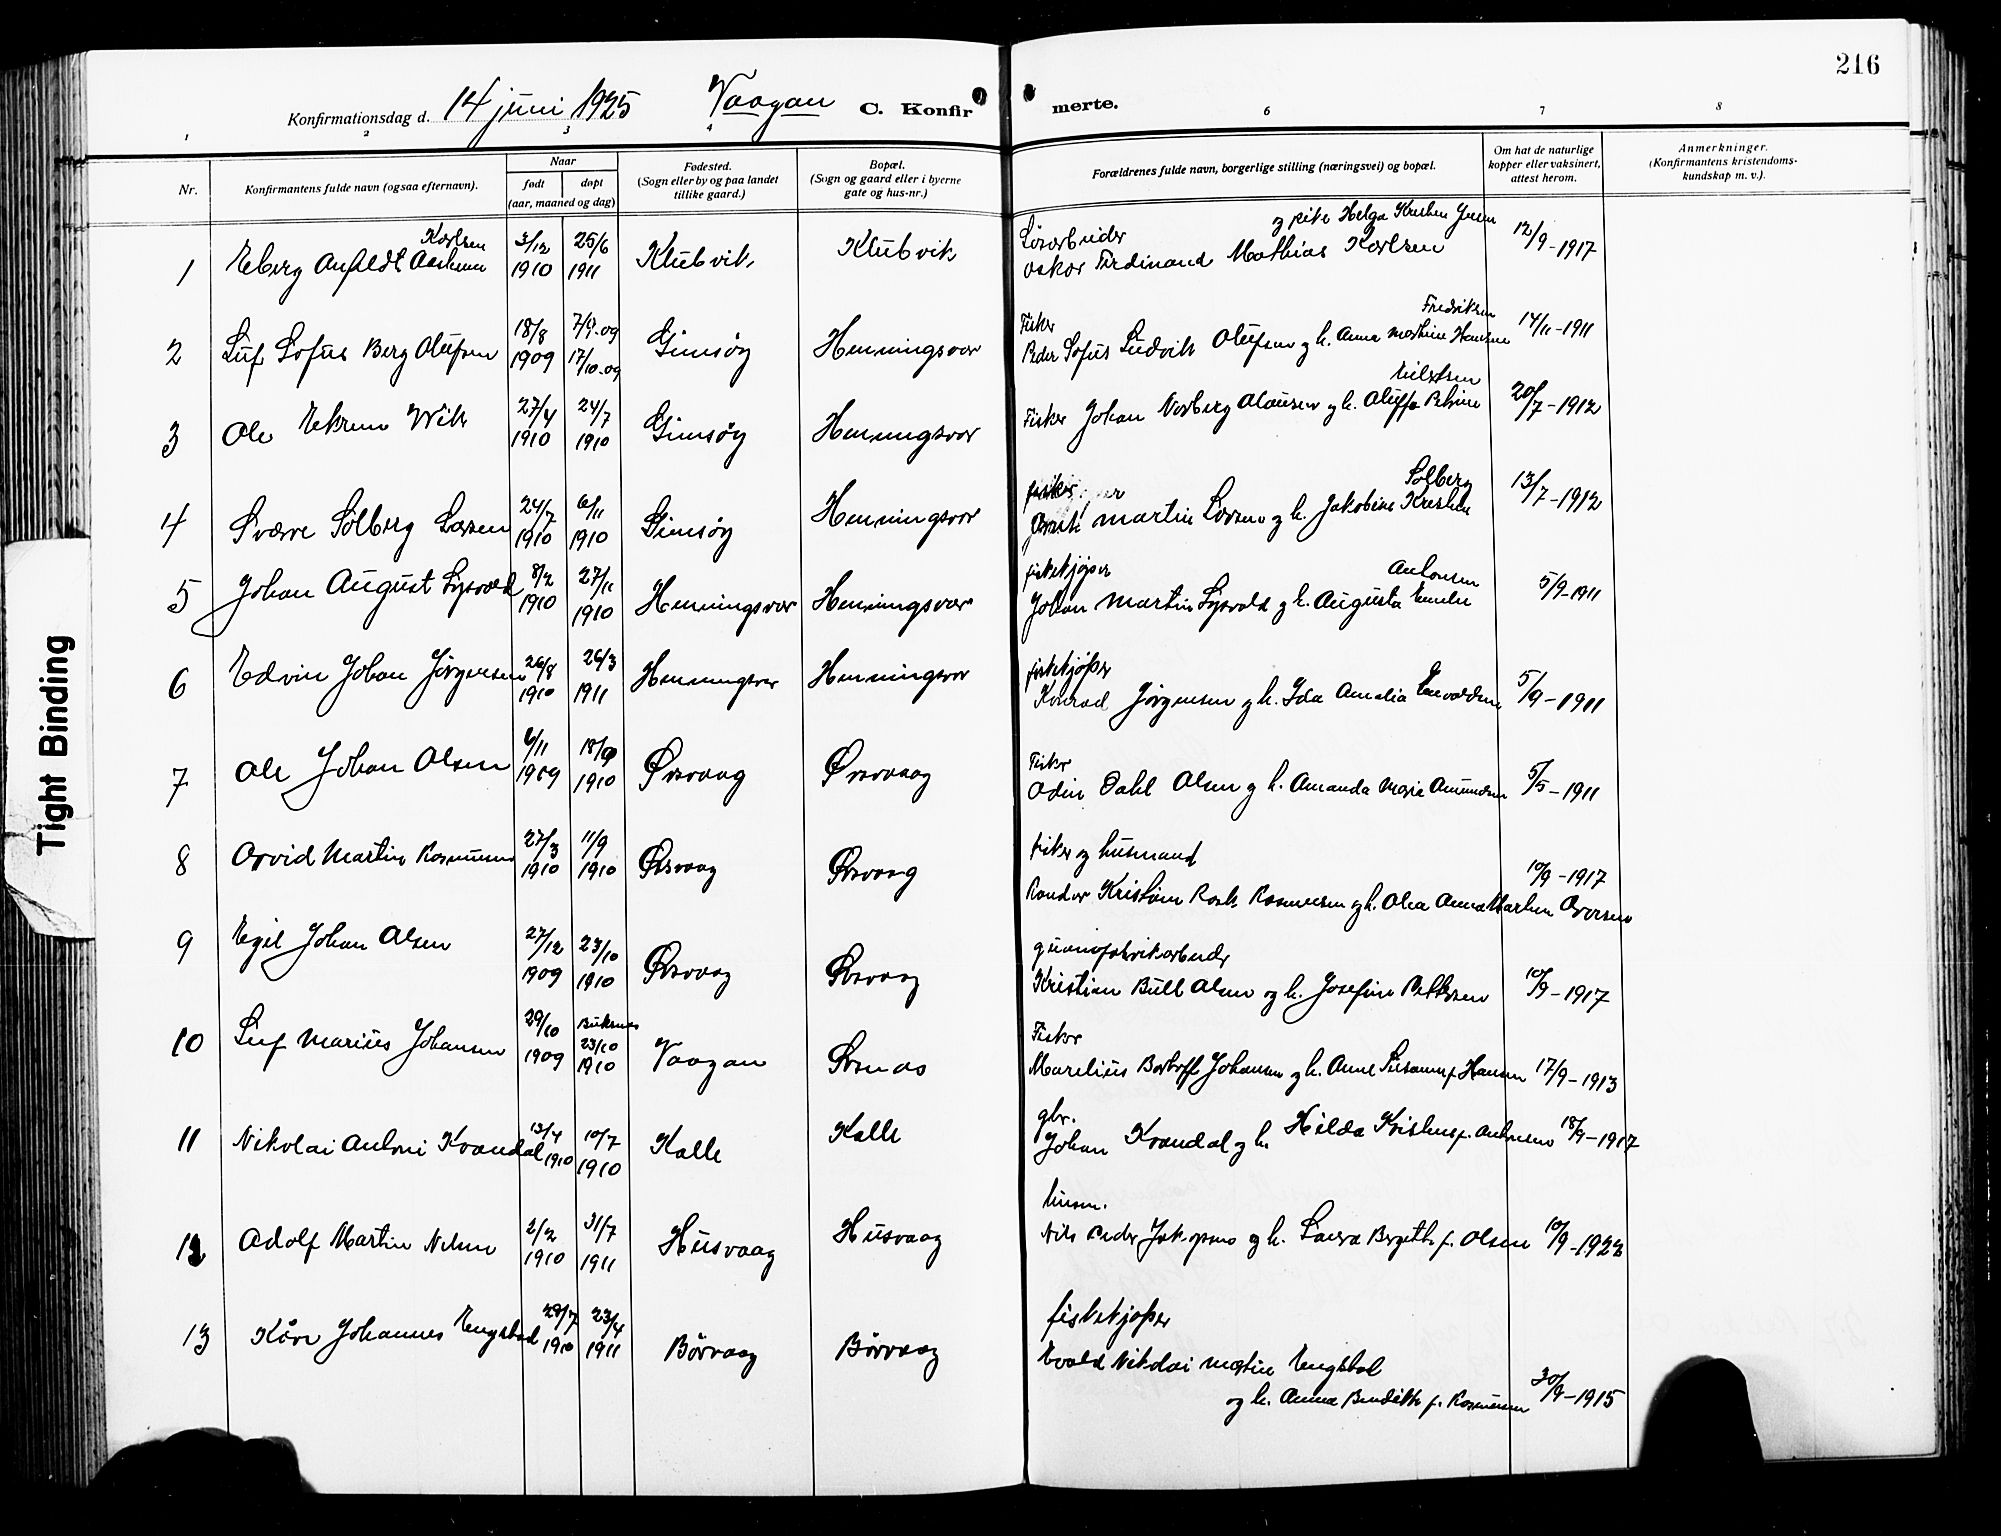 216
Konfirmationsdag d. 14 juni 1925 Vaagan C. Konfirmerte.
1 2 3 4 6 7 8
Nr. Konfirmantens fulde navn (ogsaa efternavn). Naar født døpt (aar, maaned og dag) Fødested. (Sogn eller by og paa landet tillike gaard.) Bopæl. (Sogn og gaard eller i byerne gate og hus-nr.) Forældrenes fulde navn, borgerlige stilling (næringsvei) og bopæl. Om hat de naturlige kopper eller vaksinert, attest herom. Anmerkninger. (Konfirmantens kristendoms-kundskap m. v.).
Karlsen 3/12 25/6 Løsarbeider og pike Helga
1 1910 1911 Klubvik Klubvik Oskar Ferdinand Mathias Karlsen 12/9-1917
18/8 7/9-09 Fisker Fredriksen
2 Leif Sofus Berg Olufsen 1909 17/10-09 Gimsøy Henningsvær Peder Sofus Ludvik Olufsen og h. Anna 14/11-1911
27/4 24/7
3 Ole Wik 1910 1910 Gimsøy Henningsvær Fisker Johan Norberg og h. 20/7-1912
24/7 6/11 Solberg
4 Sverre Solberg Larsen 1910 1910 Gimsøy Henningsvær Martin Larsen og h. Jakobine 13/7-1912
8/2 27/11 fiskekjøper Antonsen
5 Johan August Lysvold 1910 1910 Henningsvær Henningsvær Johan Martin Lysvold og h. Augusta 5/9-1911
26/8 26/3 fiskekjøper
6 Edvin Johan Jørgensen 1910 1911 Henningsvær Henningsvær Konrad Jørgensen og h. Ida Amalia 5/9-1911
6/11 Fisker
7 Ole Johan Olsen 1909 1910 Ørsvaag Ørsvaag Odin Dahl Olsen og h. Amanda Marie Amundsen 5/5-1911
27/3 11/9 fisker og husmand
8 Arvid Martin Rasmussen 1910 1910 Ørsvaag Ørsvaag Rasmussen og h. Olea Anna 10/9-1917
27/12 23/10 guanofabrikarbeider
9 Egil Johan Olsen 1909 1910 Ørsvaag Ørsvaag Kristian Bull Olsen og h. Josefine Pettersen 10/9-1917
29/10 Buksnes 23/10 Fisker
10 Leif Marius Johansen 1909 1910 Vaagan Ørsnes Marelius Johansen og h. Anne Susanna f. Hansen 17/9-1913
13/4 10/7 gbr.
11 Nikolai Antoni Kvandal 1910 1910 Kalle Kalle Johan Kvandal og h. Hilda f. Antonsen 18/9-1917
2/2 31/7 husm.
12 Adolf Martin Nilsen 1910 1911 Husvaag Husvaag Nils Peder og h. Laura f. Olsen 10/9-1922
29/7 23/4 fiskekjøper
13 Kåre Johannes Engstad 1910 1911 Børvaag Børvaag Evald Nikolai Martin Engstad
og h. Anna f. Rasmussen 30/9-1915
Tight Binding